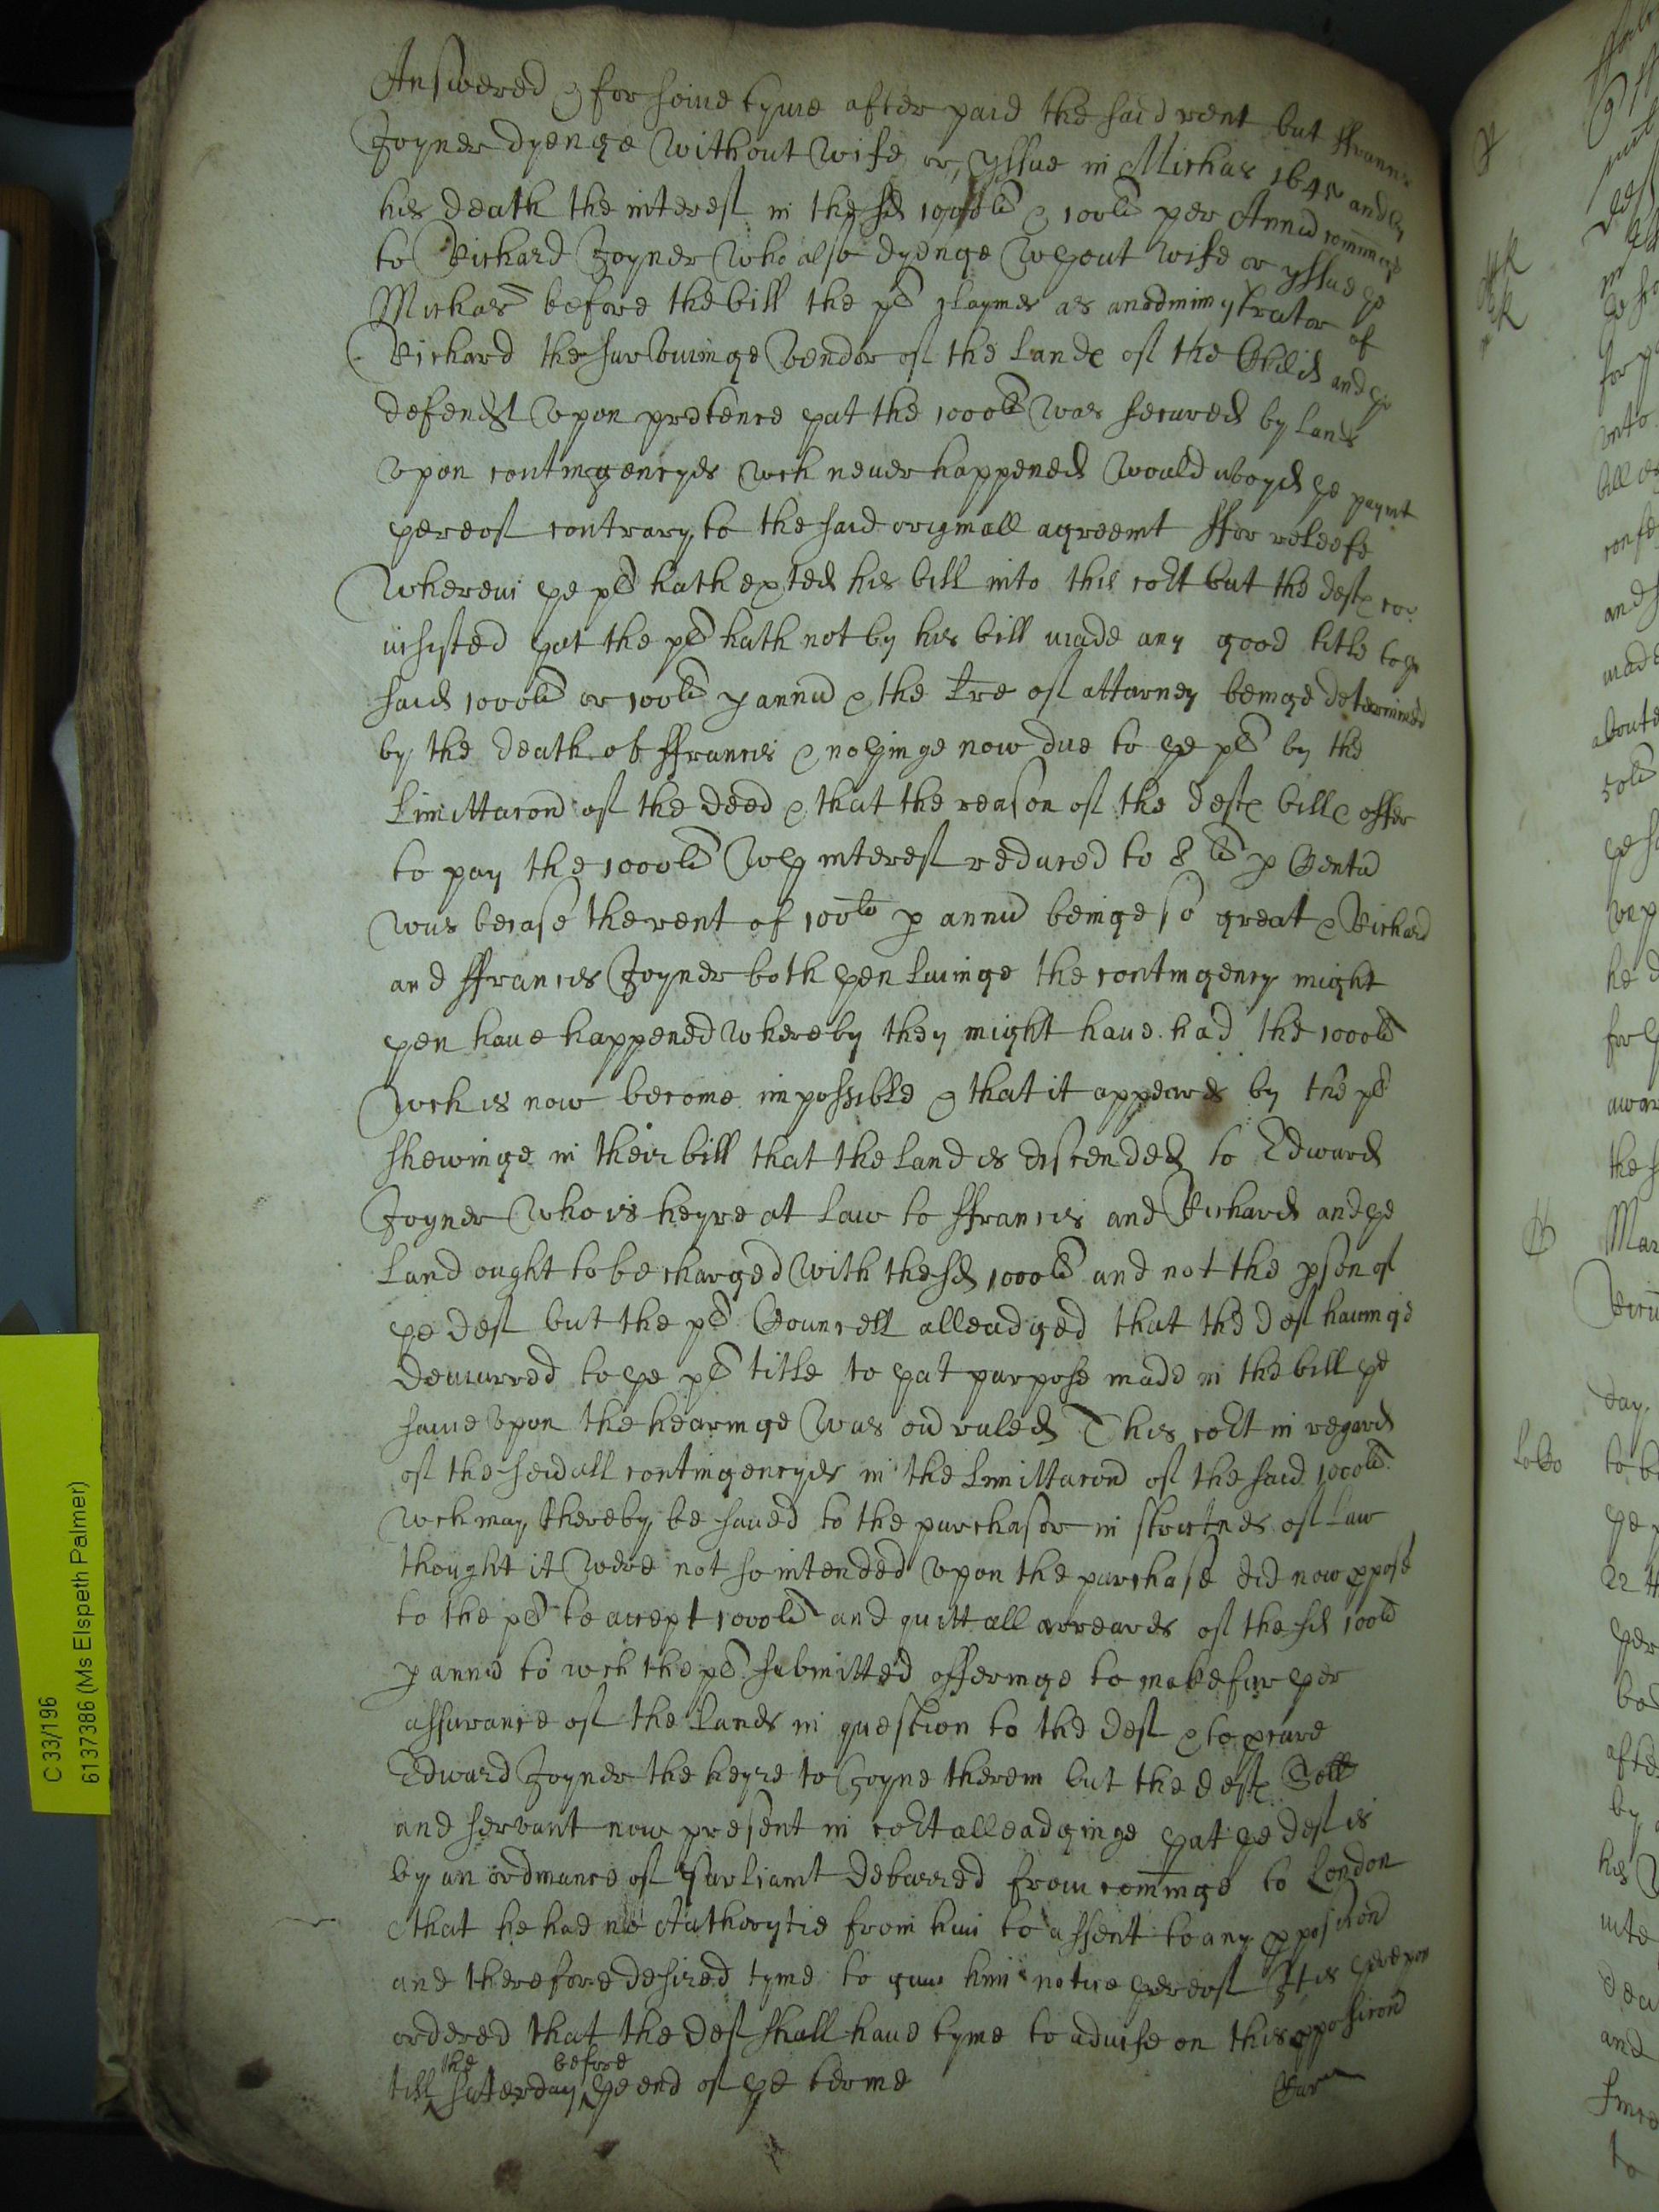 Answered & for some tyme after paid the said rent but ffrancis
Joyner dyenge without wife or yssue in Michas 1645 and by
his death the interest in the sd 1000li & 100li per Annu comminge
to Richard Joyner who also dyenge wthout wife or yssue ye
Michas before the bill the pl claymes as anadminystrator of
Richard the survivinge vendor of the Lande of the Child and ye
defendt upon pretence yat the 1000li was secured by Lands
upon contingencyes wch never happened would avoyd ye paymt
yereof contrary to the said originall agreemt ffor releefe
wherein ye pl hath exted his bill into this cort but the deft
insisted yat the pl hath not by his bill made any good title to ye
said 1000li or 100li p annu & the Lre of attorney beinge determined
by the death of ffrancis & noyinge now due to ye pl by the
Limittacon of the deed & that the reason of the deft bill & offer
to pay the 1000li wth interest reduced to 8 li p Centu
was becase the rent of 100li p annu beinge so great & Richard
and ffrancis Joyner both yen livinge the contingency might
yen have happened whereby they might have had the 1000li
wch is now become impossible & that it appeares by the pl
shewinge in their bill that the Land is discended to Edward
Joyner who is heyre at Law to ffrancis and Richard and ye
Land ought to be charged with the sd 1000li and not the pson of
ye deft but the pl Councell alleadged that the deft havinge
demurred to ye pl title to yat purpose made in the bill ye
same upon the hearinge was ovruled This cort in regard
of the sevall contingencyes in the Limittacon of the said 1000li
wch may thereby be saved to the purchasor in strictnes of Law
thought it were not so intended upon the purchase did now ppose
to the pl to accept 1000li and quitt all arreares of the sd 100li
p annu to wch the pl submitted offeringe to make furyer
assurance of the Lands in question to the deft & to pcure
Edward Joyner the heyre to Joyne therein but the deft Sollr
and servant now present in cort alleadginge yat ye deft is
by an ordinance of parliamt debarred from comminge to London
& that he had no Authorytie from him to assent to any pposicon
and therefore desired tyme to give him notice yereof It is yereupon
ordered that the deft shall have tyme to advise on this pposicon
till the saterday before ye end of ye terme